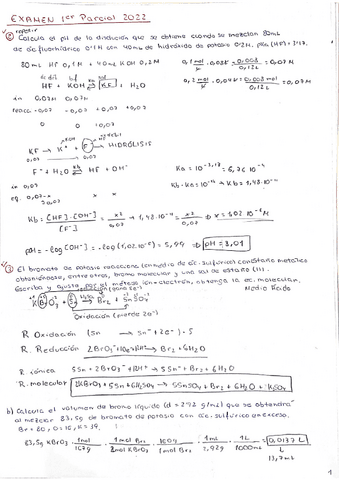 EXAMEN 1er Parcial 2022
repetir
② Calcula el pH de la disolución que se obtiene cuando se mezclan 80mL
de ác. fluorhídrico 0'1M con 40mL de hidróxido de potasio 0'2M. pKa (HF) = 3'17.
80 mL HF 0,1 M + 40 mL KOH 0,2 M
HF + KOH → KF + H₂O
in 0,07M 0,07
reacc. -0,07 -0,07 +0,07
0 0 0,07
KF → K⁺ + F⁻ → HIDRÓLISIS
0,07 0,07 0,07
F⁻ + H₂O ⇌ HF + OH⁻
in 0,07
eq. 0,07-x x x
Ka = 10^-3,17 = 6,76·10⁻⁴
Ka·Kb = 10⁻¹⁴ → Kb = 1,48·10⁻¹¹
Kb = [HF]·[OH⁻] / [F⁻] = x² / 0,07 → 1,48·10⁻¹¹ = x² / 0,07 → x = 1,02·10⁻⁶ M
pOH = -log[OH⁻] = -log(1,02·10⁻⁶) = 5,99 → pH = 8,01
③ El bromato de potasio reacciona (en medio de ác. sulfúrico) con estaño metálico
obteniéndose, entre otros, bromo molecular y una sal de estaño (II).
Escriba y ajusta por el método ion-electrón, obtenga la ec. molecular.
Medio Ácido
Oxidación (pierde 2e⁻)
R Oxidación (Sn → Sn²⁺ + 2e⁻)·5
R. Reducción 2BrO₃⁻ + 10e⁻ + 12H⁺ → Br₂ + 6H₂O
R iónica 5Sn + 2BrO₃⁻ + 12H⁺ → 5Sn²⁺ + Br₂ + 6H₂O
R. molecular 2KBrO₃ + 5Sn + 6H₂SO₄ → 5SnSO₄ + Br₂ + 6H₂O + K₂SO₄
b) Calcula el volumen de bromo líquido (d = 2'92 g/mL) que se obtendrá
al mezclar 83,5g de bromato de potasio con ác. sulfúrico en exceso.
Br = 80, O = 16, K = 39.
83,5g KBrO₃ · 1mol / 167g · 1mol Br₂ / 2mol KBrO₃ · 160g / 1mol Br₂ · 1mL / 2,92g · 1L / 1000mL = 0,0137 L
13,7mL
1